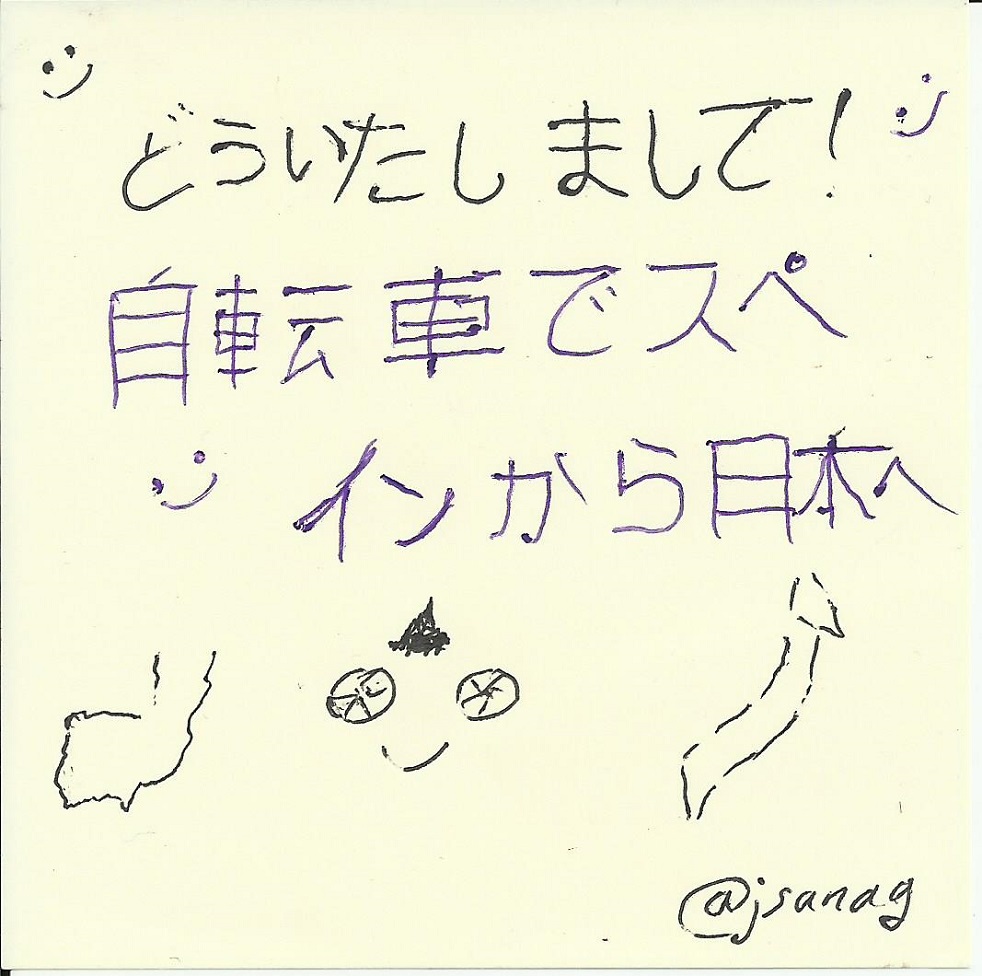 どういたしまして!
自転車でスペ
インから日本へ
@jsanag